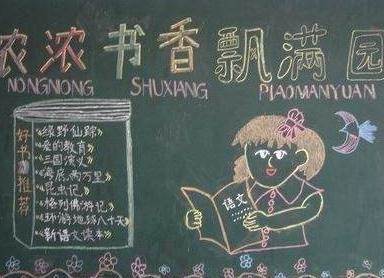 农浓书香飘满园
NONGNONG SHUXIANG PIAOMANYUAN
好书推荐
《绿野仙踪》
《爱的教育》
《三国演义》
《海底两万里》
《昆虫记》
《格列佛游记》
《环游地球八十天》
《新语文读本》
语文